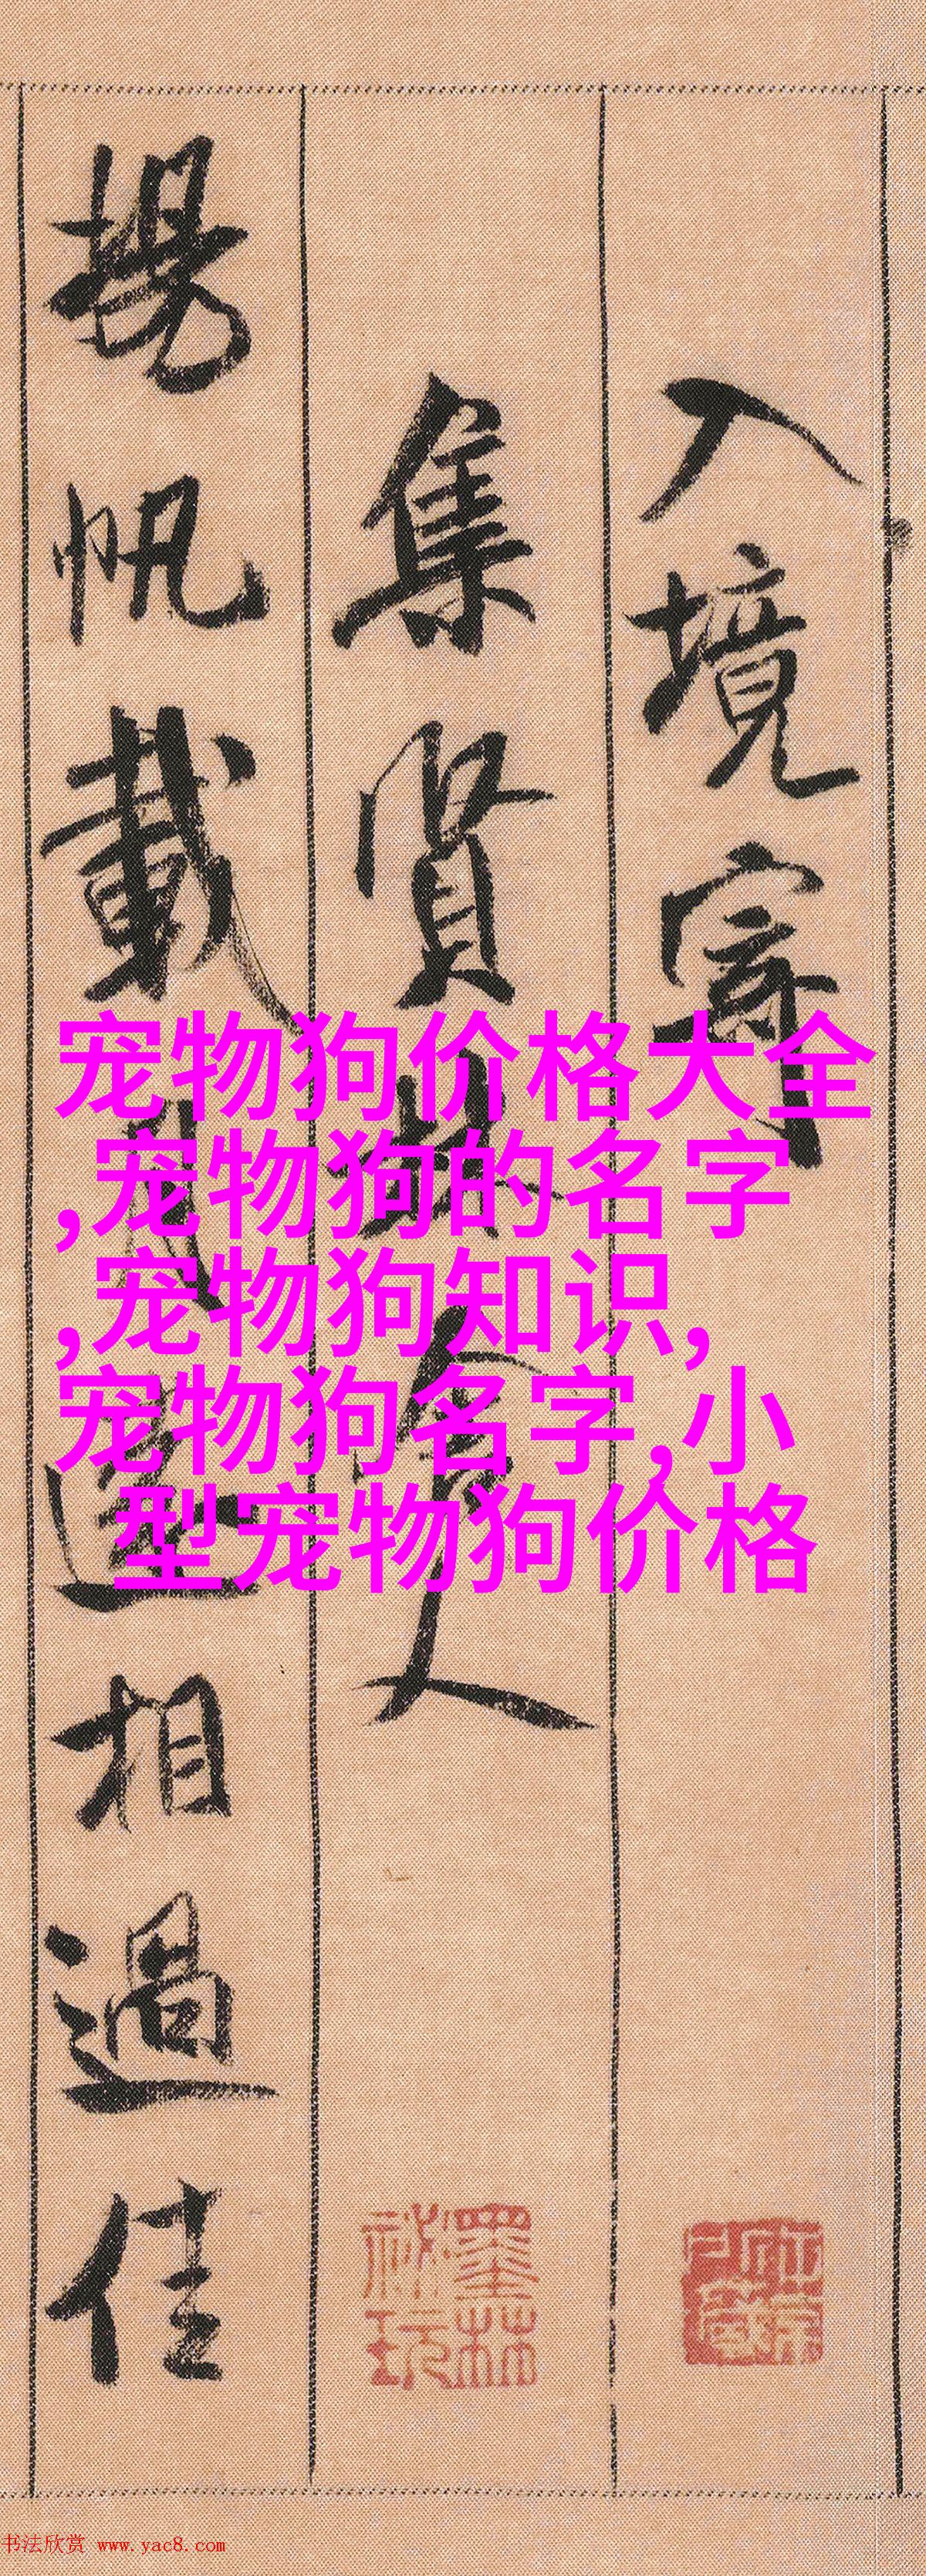 入境寄
集賢林舍人
揚帆載月遠相過佳
宠物狗价格大全
,宠物狗的名字
,宠物狗知识,
宠物狗名字,小
型宠物狗价格
墨林
秘玩
书法欣赏 www.yac8.com